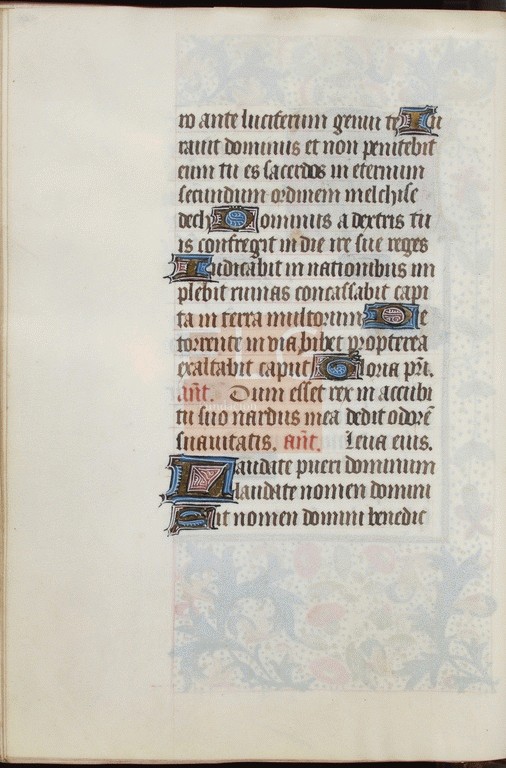 ro ante luciferum genui te Iu
rauit dominus et non penitebit
eum tu es sacerdos in eternum
secundum ordinem melchise
dech Dominus a dextris tu
is confregit in die ire sue reges
Iudicabit in nationibus im
plebit ruinas concassabit capi
ta in terra multorum De
torrente in via bibet propterea
exaltabit caput Gloria pr̄i.
an̄t. Dum esset rex in accubi
tu suo nardus mea dedit odorē
suauitatis. an̄t. Leua eius.
Laudate pueri dominum
laudate nomen domini
Sit nomen domini benedic